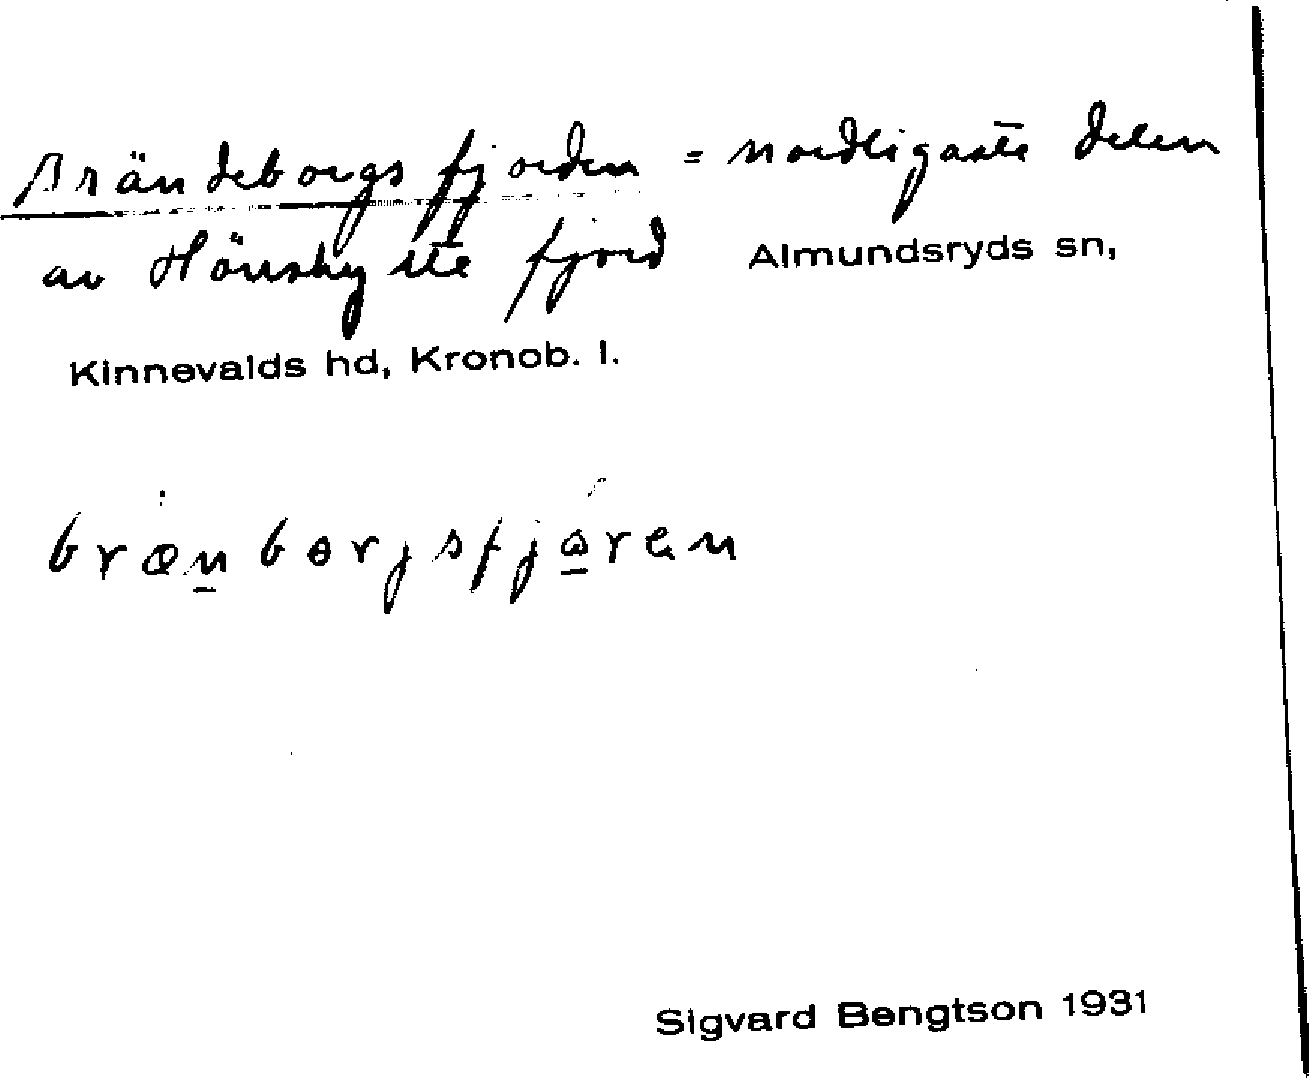 Brändeborgsfjorden = nordligaste delen
av Hönshyltefjord Almundsryds sn,
Kinnevalds hd, Kronob. l.
brænbɵrjsfjɷren
Sigvard Bengtson 1931